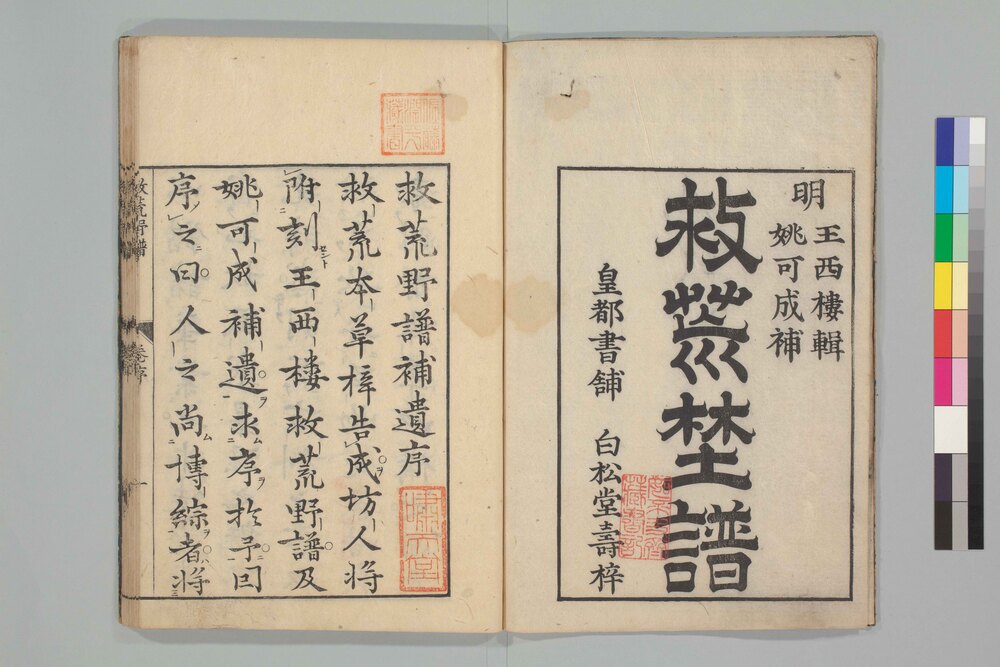 明
王西樓輯
姚可成補
救荒埜譜
皇都書舖 白松堂壽梓
救荒野譜補遺序
救荒本草梓告成坊人将
附刻王西楼救荒野譜及
姚可成補遺求序於予因
序之曰人之尚博綜者将
救荒野譜
卷序
一